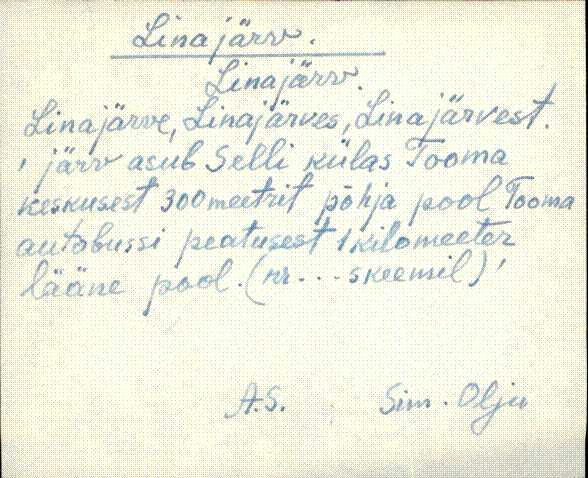 Linajärv.
Linajärv.
Linajärve, Linajärves, Linajärvest.
' järv asub Selli külas Tooma
keskusest 300 meetrit põhja pool Tooma
autobussi peatusest 1 kilomeeter
lääne pool. (nr. ... skeemil)'
A.S. Sim. Olju